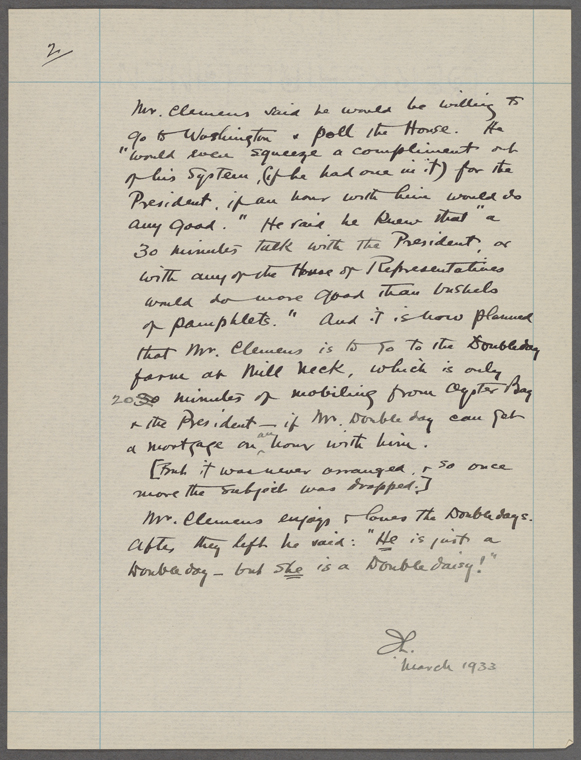 2
Mr. Clemens said he would be willing to
go to Washington & poll the House. He
"would even squeeze a compliment out
of his system, (if he had one in it) for the
President, if an hour with him would do
any good." He said he knew that "a
30 minutes talk with the President, or
with any of the House of Representatives
would do more good than bushels
of pamphlets." And it is now planned
that Mr. Clemens is to go to the Doubleday
farm at Mill Neck, which is only
20 minutes of mobiling from Oyster Bay
& the President — if Mr. Doubleday can get
a mortgage on an hour with him.
[But it was never arranged, & so once
more the subject was dropped.]
Mr. Clemens enjoys & loves the Doubledays.
After they left he said: "He is just a
Doubleday — but She is a Doubledaisy!"
March 1933